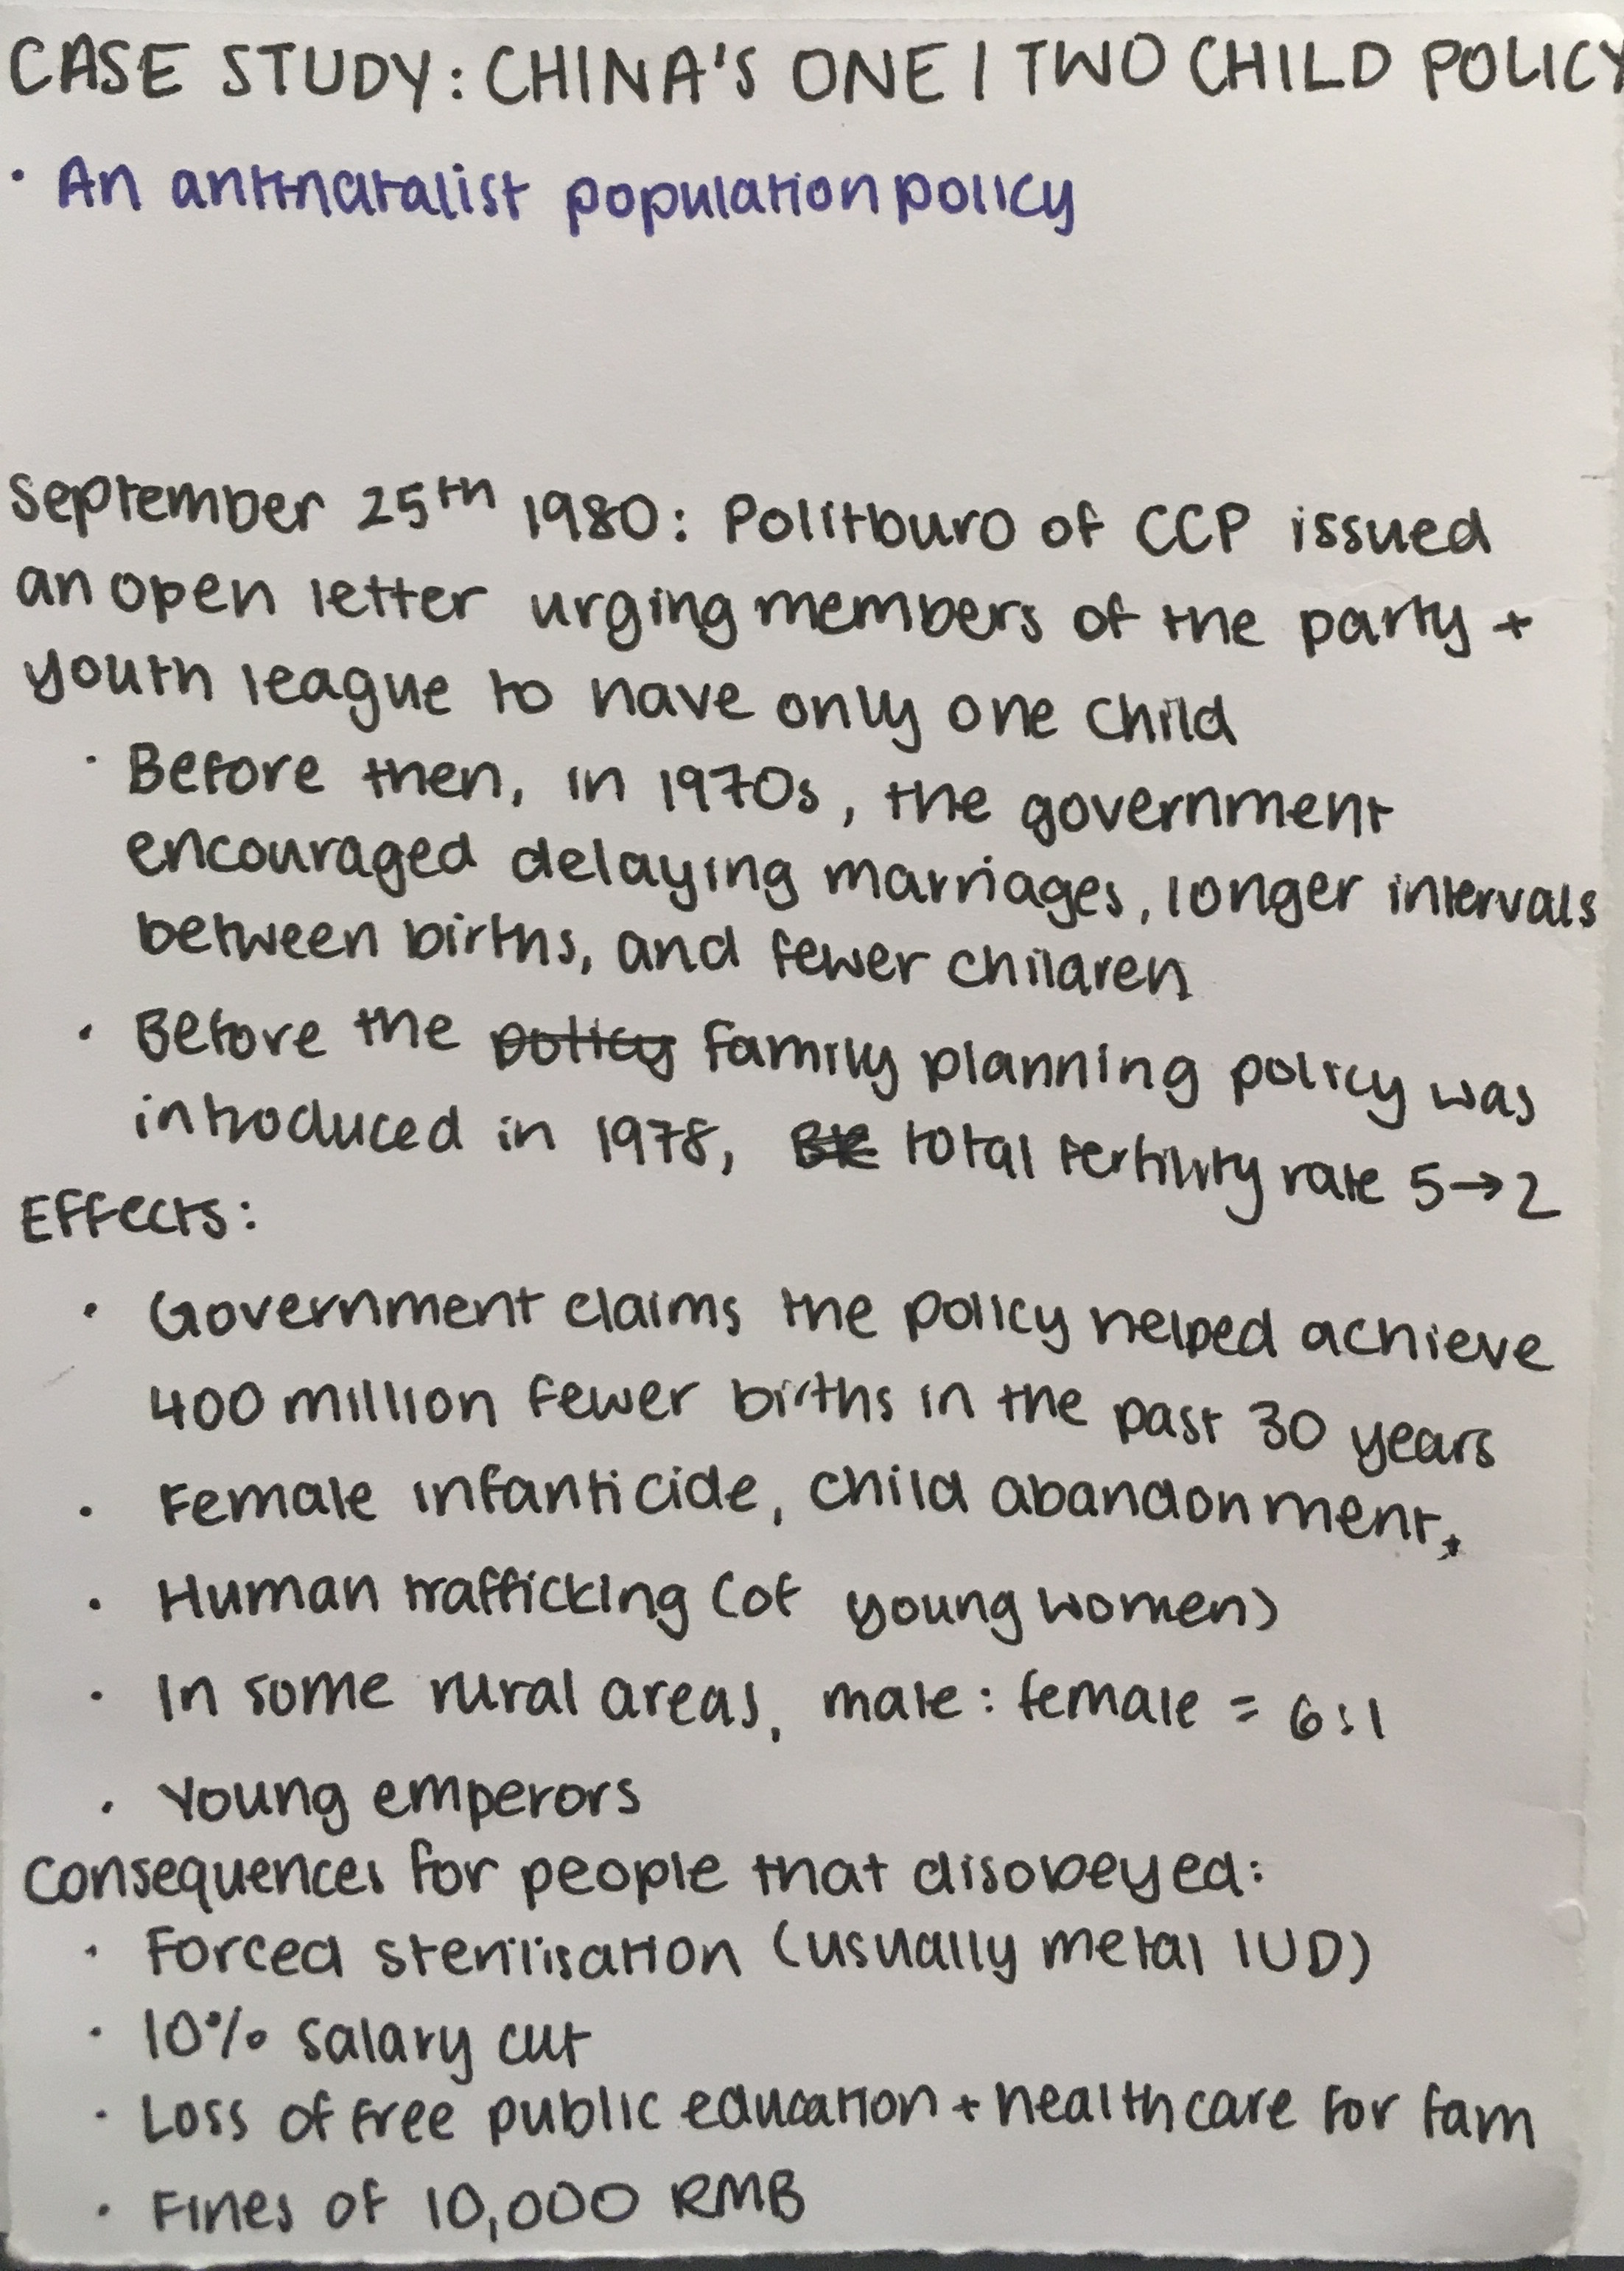 CASE STUDY: CHINA'S ONE / TWO CHILD POLICY
· An anti-natalist population policy
September 25th 1980: Politburo of CCP issued
an open letter urging members of the party +
youth league to have only one child
· Before then, in 1970s, the government
encouraged delaying marriages, longer intervals
between births, and fewer children
· Before the policy family planning policy was
introduced in 1978, BR total fertility rate 5→2
Effects:
· Government claims the policy helped achieve
400 million fewer births in the past 30 years
· Female infanticide, child abandonment,
· Human trafficking (of young women)
· In some rural areas, male : female = 6:1
· Young emperors
Consequences for people that disobeyed:
· Forced sterilisation (usually metal IUD)
· 10% salary cut
· Loss of free public education + healthcare for fam
· Fines of 10,000 RMB